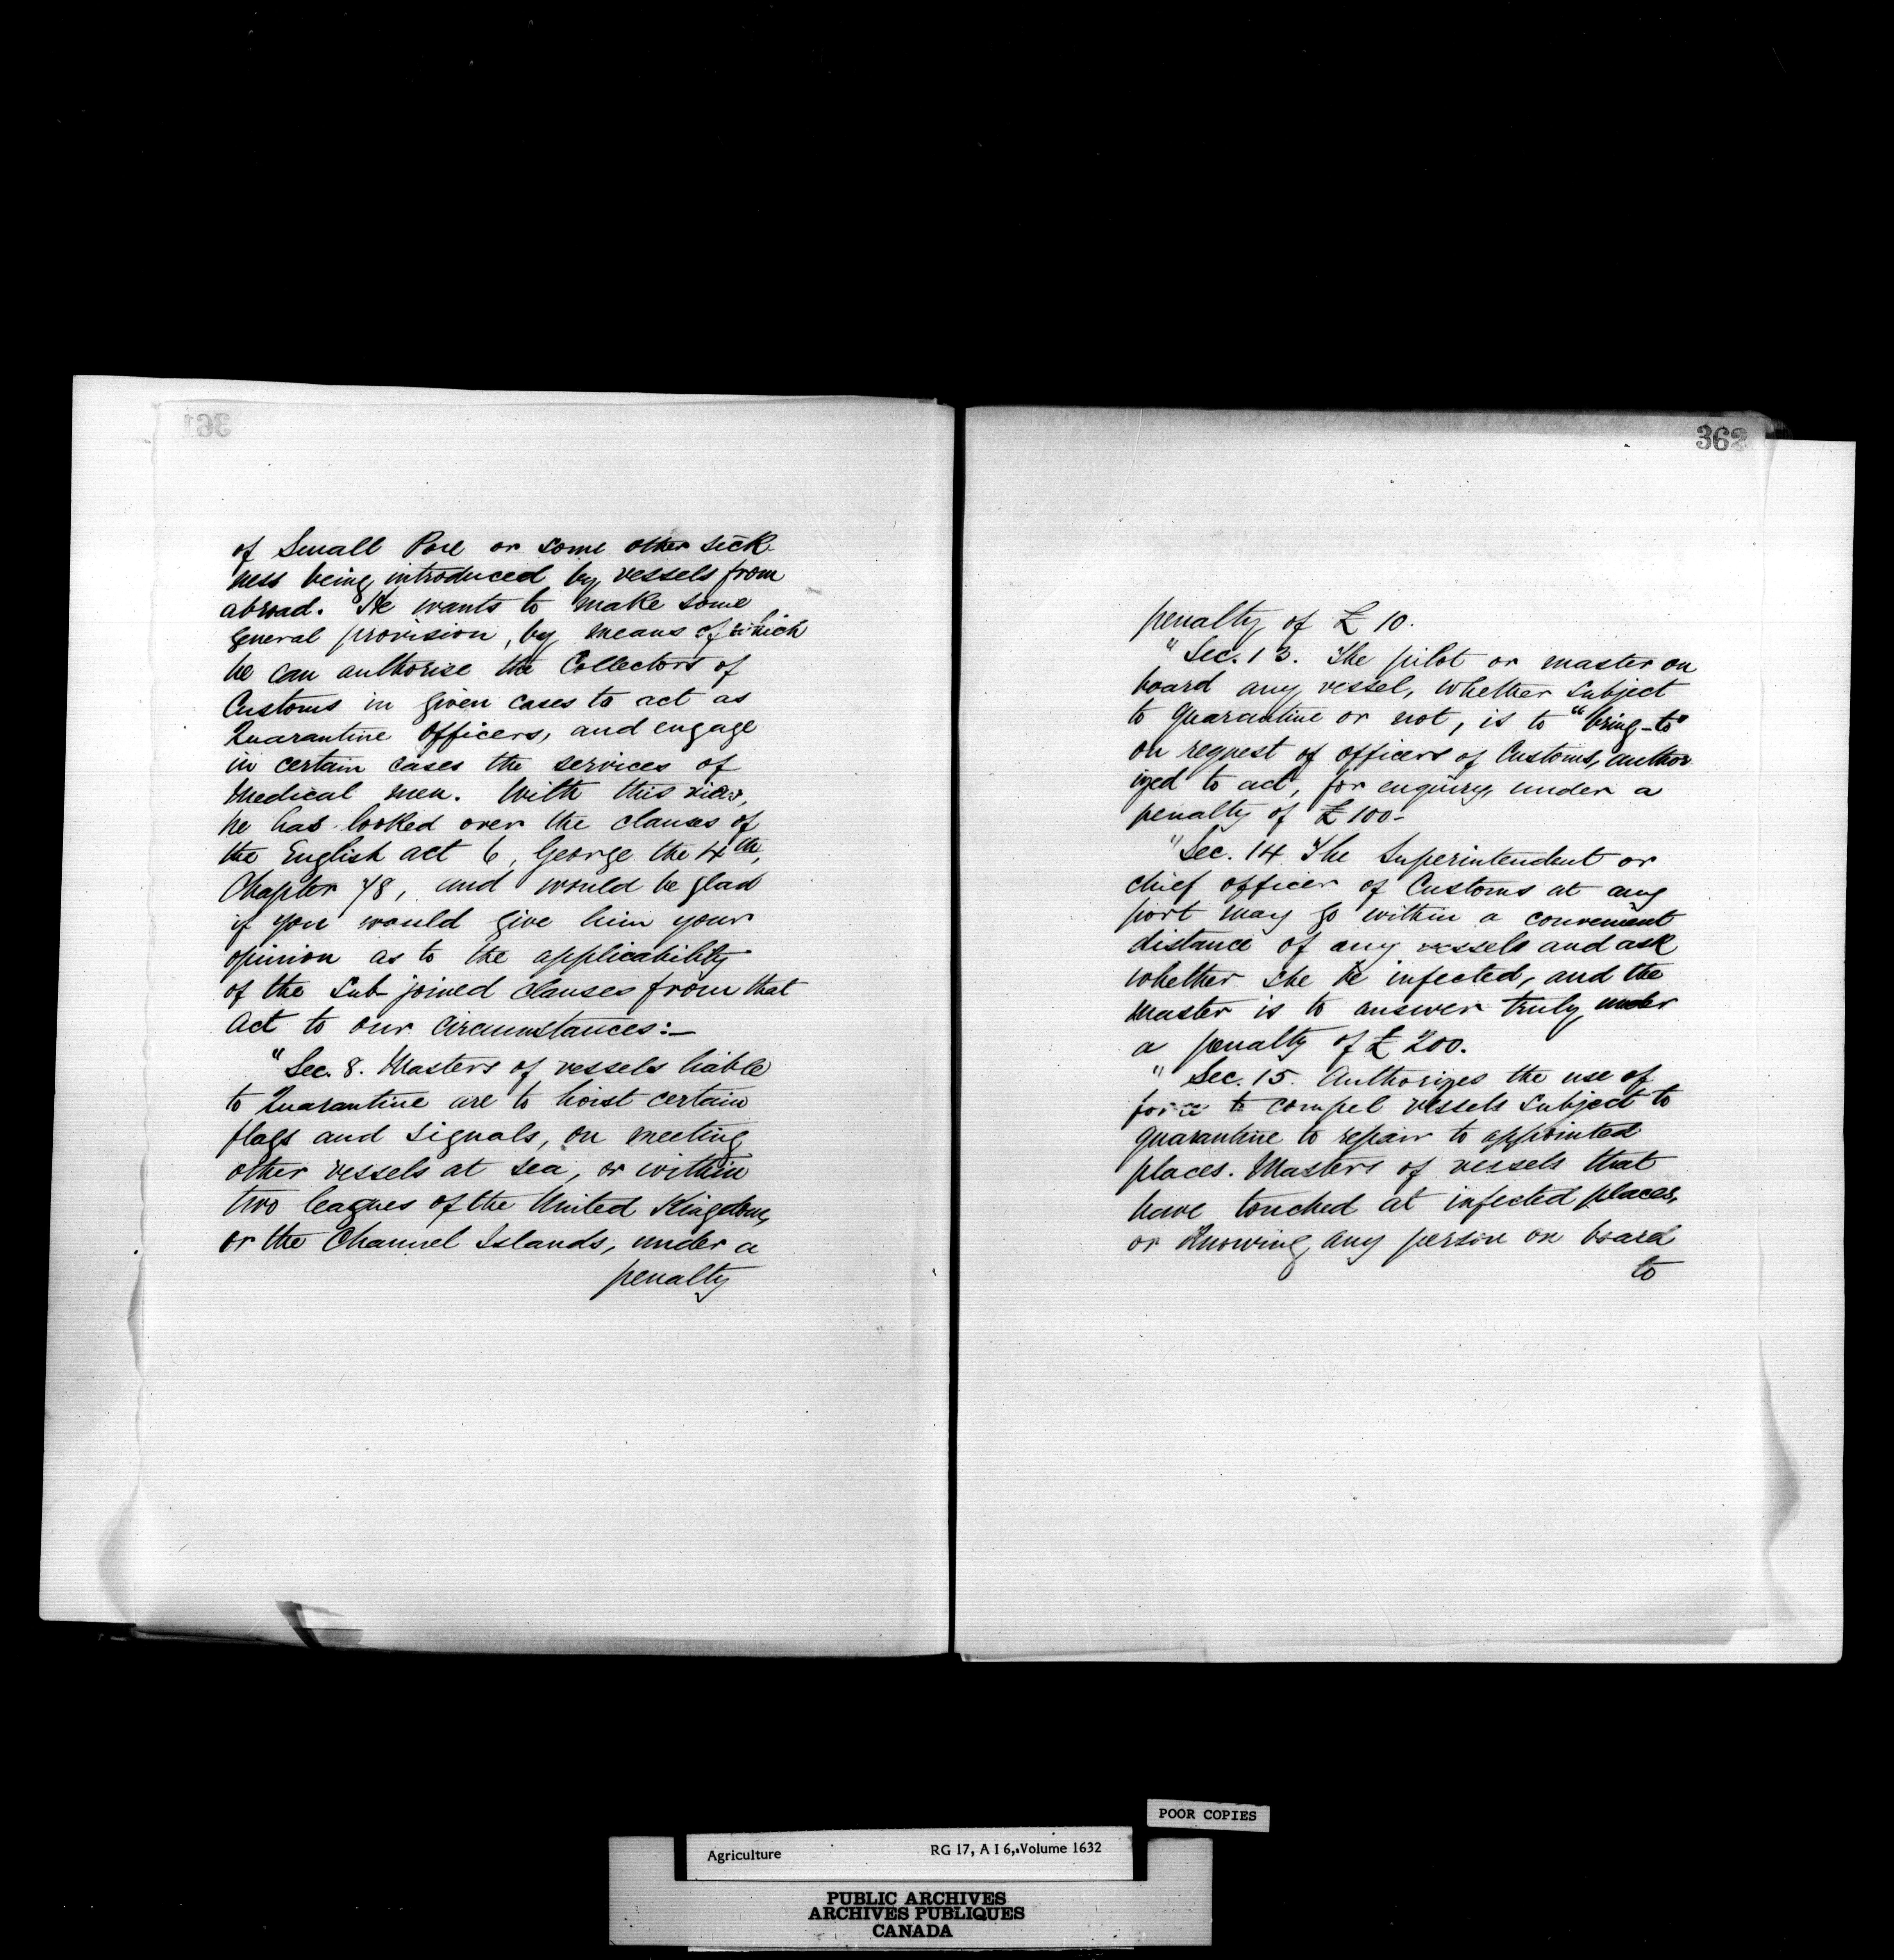 361
of Small Pox or some other sick-
ness being introduced by vessels from
abroad. He wants to make some
general provision, by means of which
he can authorise the Collectors of
Customs in given cases to act as
Quarantine Officers, and engage
in certain cases the services of
Medical men. With this view,
he has looked over the clauses of
the English act 6, George the 4th,
Chapter 78, and would be glad
if you would give him your
opinion as to the applicability
of the Sub-joined clauses from that
Act to our Circumstances:—
"Sec. 8. Masters of vessels liable
to Quarantine are to hoist certain
flags and signals, on meeting
other vessels at sea, or within
two leagues of the United Kingdom,
or the Channel Islands, under a
penalty
362
penalty of £10.
"Sec. 13. The pilot or master on
board any vessel, whether subject
to Quarantine or not, is to "bring-to"
on request of officers of Customs, author
ized to act, for enquiry, under a
penalty of £100-
"Sec. 14. The Superintendent or
chief officer of Customs at any
port may go within a convenient
distance of any vessels and ask
whether she be infected, and the
Master is to answer truly, under
a penalty of £200.
"Sec. 15. Authorizes the use of
force to compel vessels subject to
quarantine to repair to appointed
places. Masters of vessels that
have touched at infected places,
or Knowing any person on board
to
POOR COPIES
Agriculture RG 17, A I 6, Volume 1632
PUBLIC ARCHIVES
ARCHIVES PUBLIQUES
CANADA